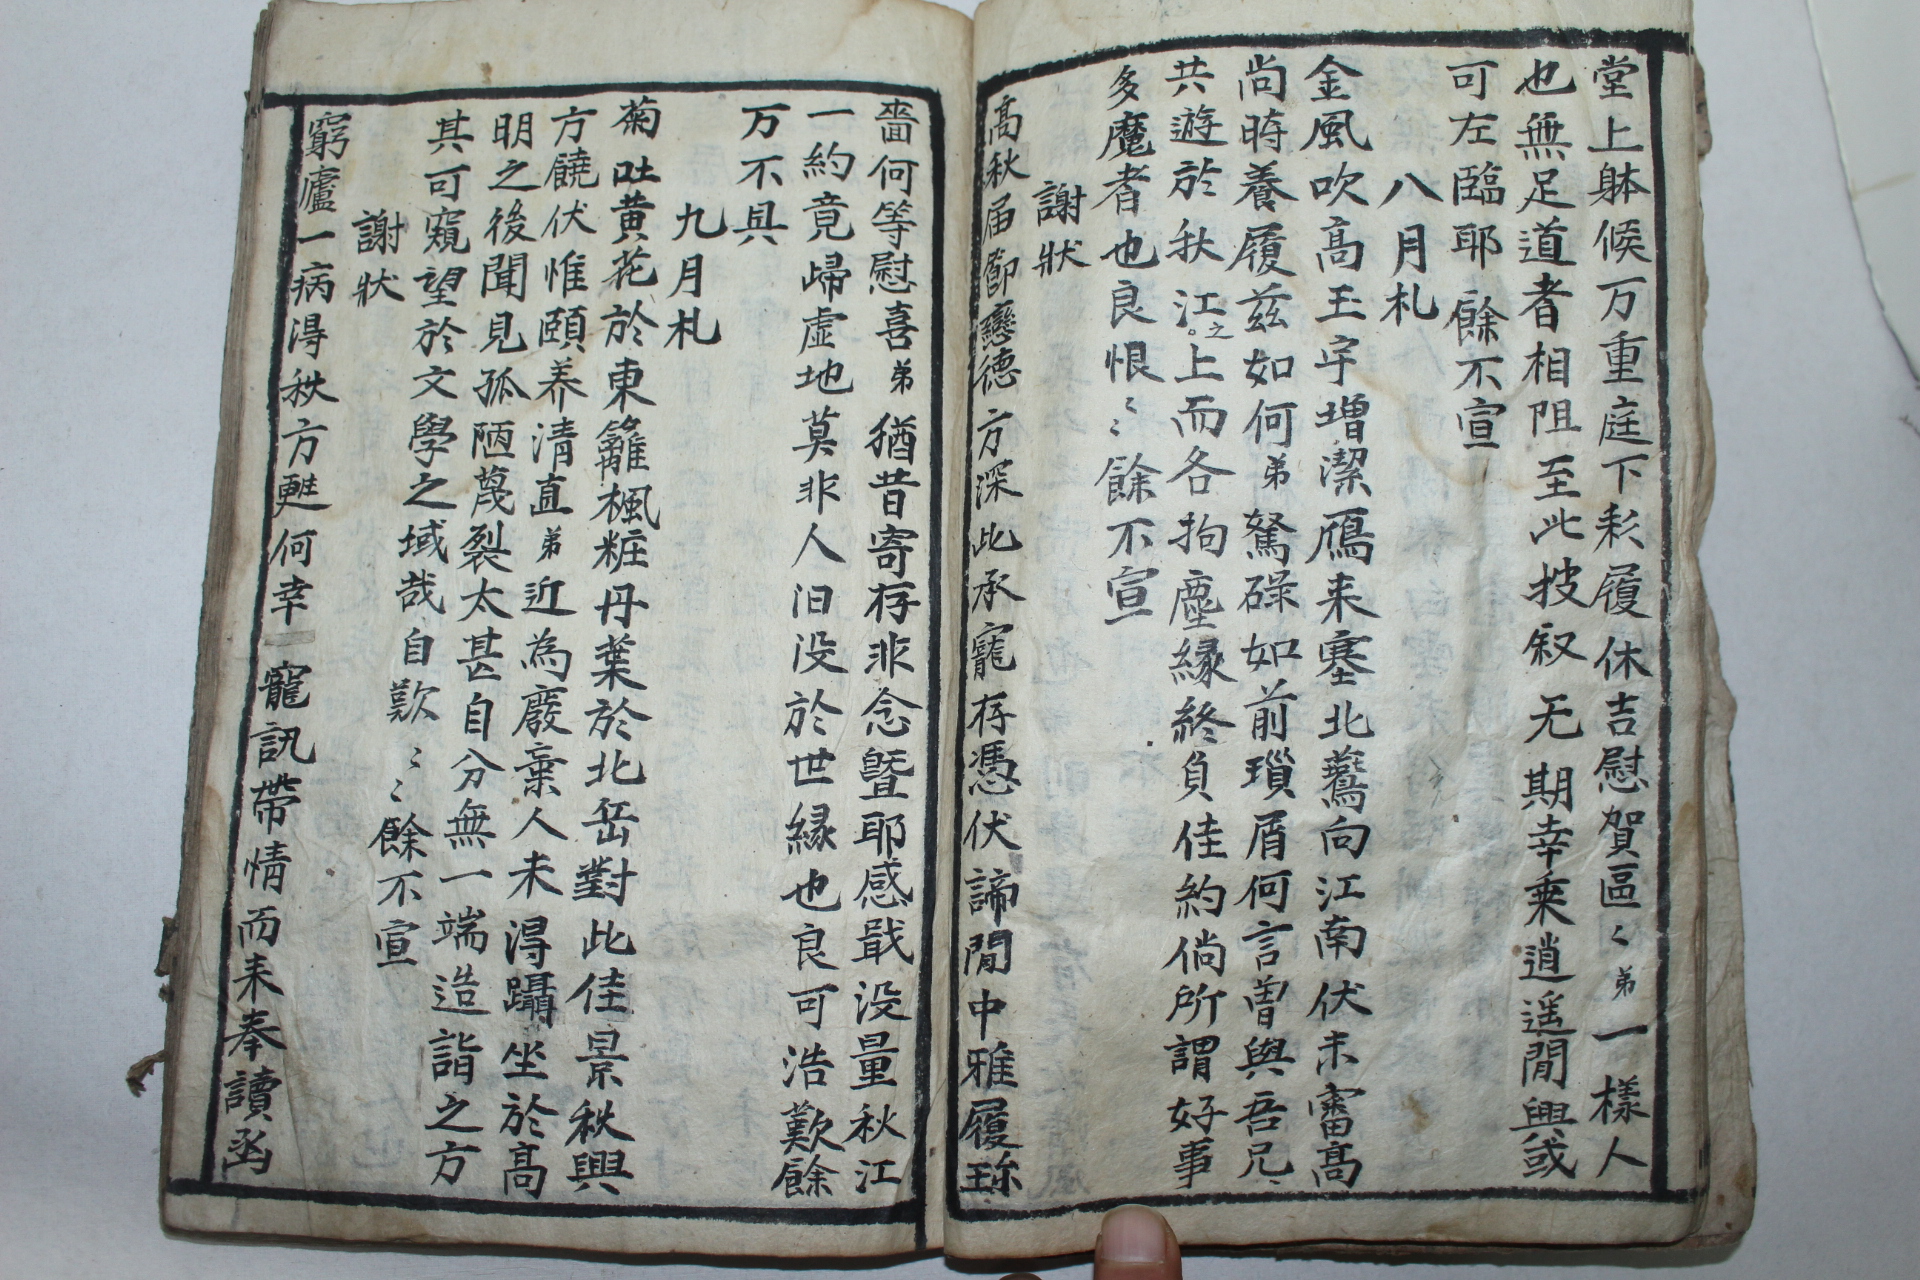 堂上躰候万重庭下彩履休吉慰賀區〻弟一樣人
也無足道者相阻至此披叙无期幸乘逍遥閒興或
可左臨耶餘不宣
八月札
金風吹高玉宇增潔鴈来塞北鷰向江南伏未審高
尚時養履兹如何弟駑碌如前瑣屑何言曽與吾兄
共遊於秋江之上而各拘塵縁終負佳約倘所謂好事
多魔者也良恨〻〻餘不宣
謝狀
高秋届節戀德方深此承寵存憑伏諦閒中雅履珎
嗇何等慰喜弟猶昔寄存非念曁耶感戢没量秋江
一約竟歸虚地莫非人汨没於世縁也良可浩歎餘
万不具
九月札
菊吐黄花於東籬楓粧丹葉於北岳對此佳景秋興
方饒伏惟頤养清直弟近為廢棄人未得躡坐於高
明之後聞見孤陋蔑裂太甚自分無一端造詣之方
其可窺望於文學之域哉自歎〻〻餘不宣
謝狀
窮廬一病得秋方甦何幸寵訊帶情而来奉讀函